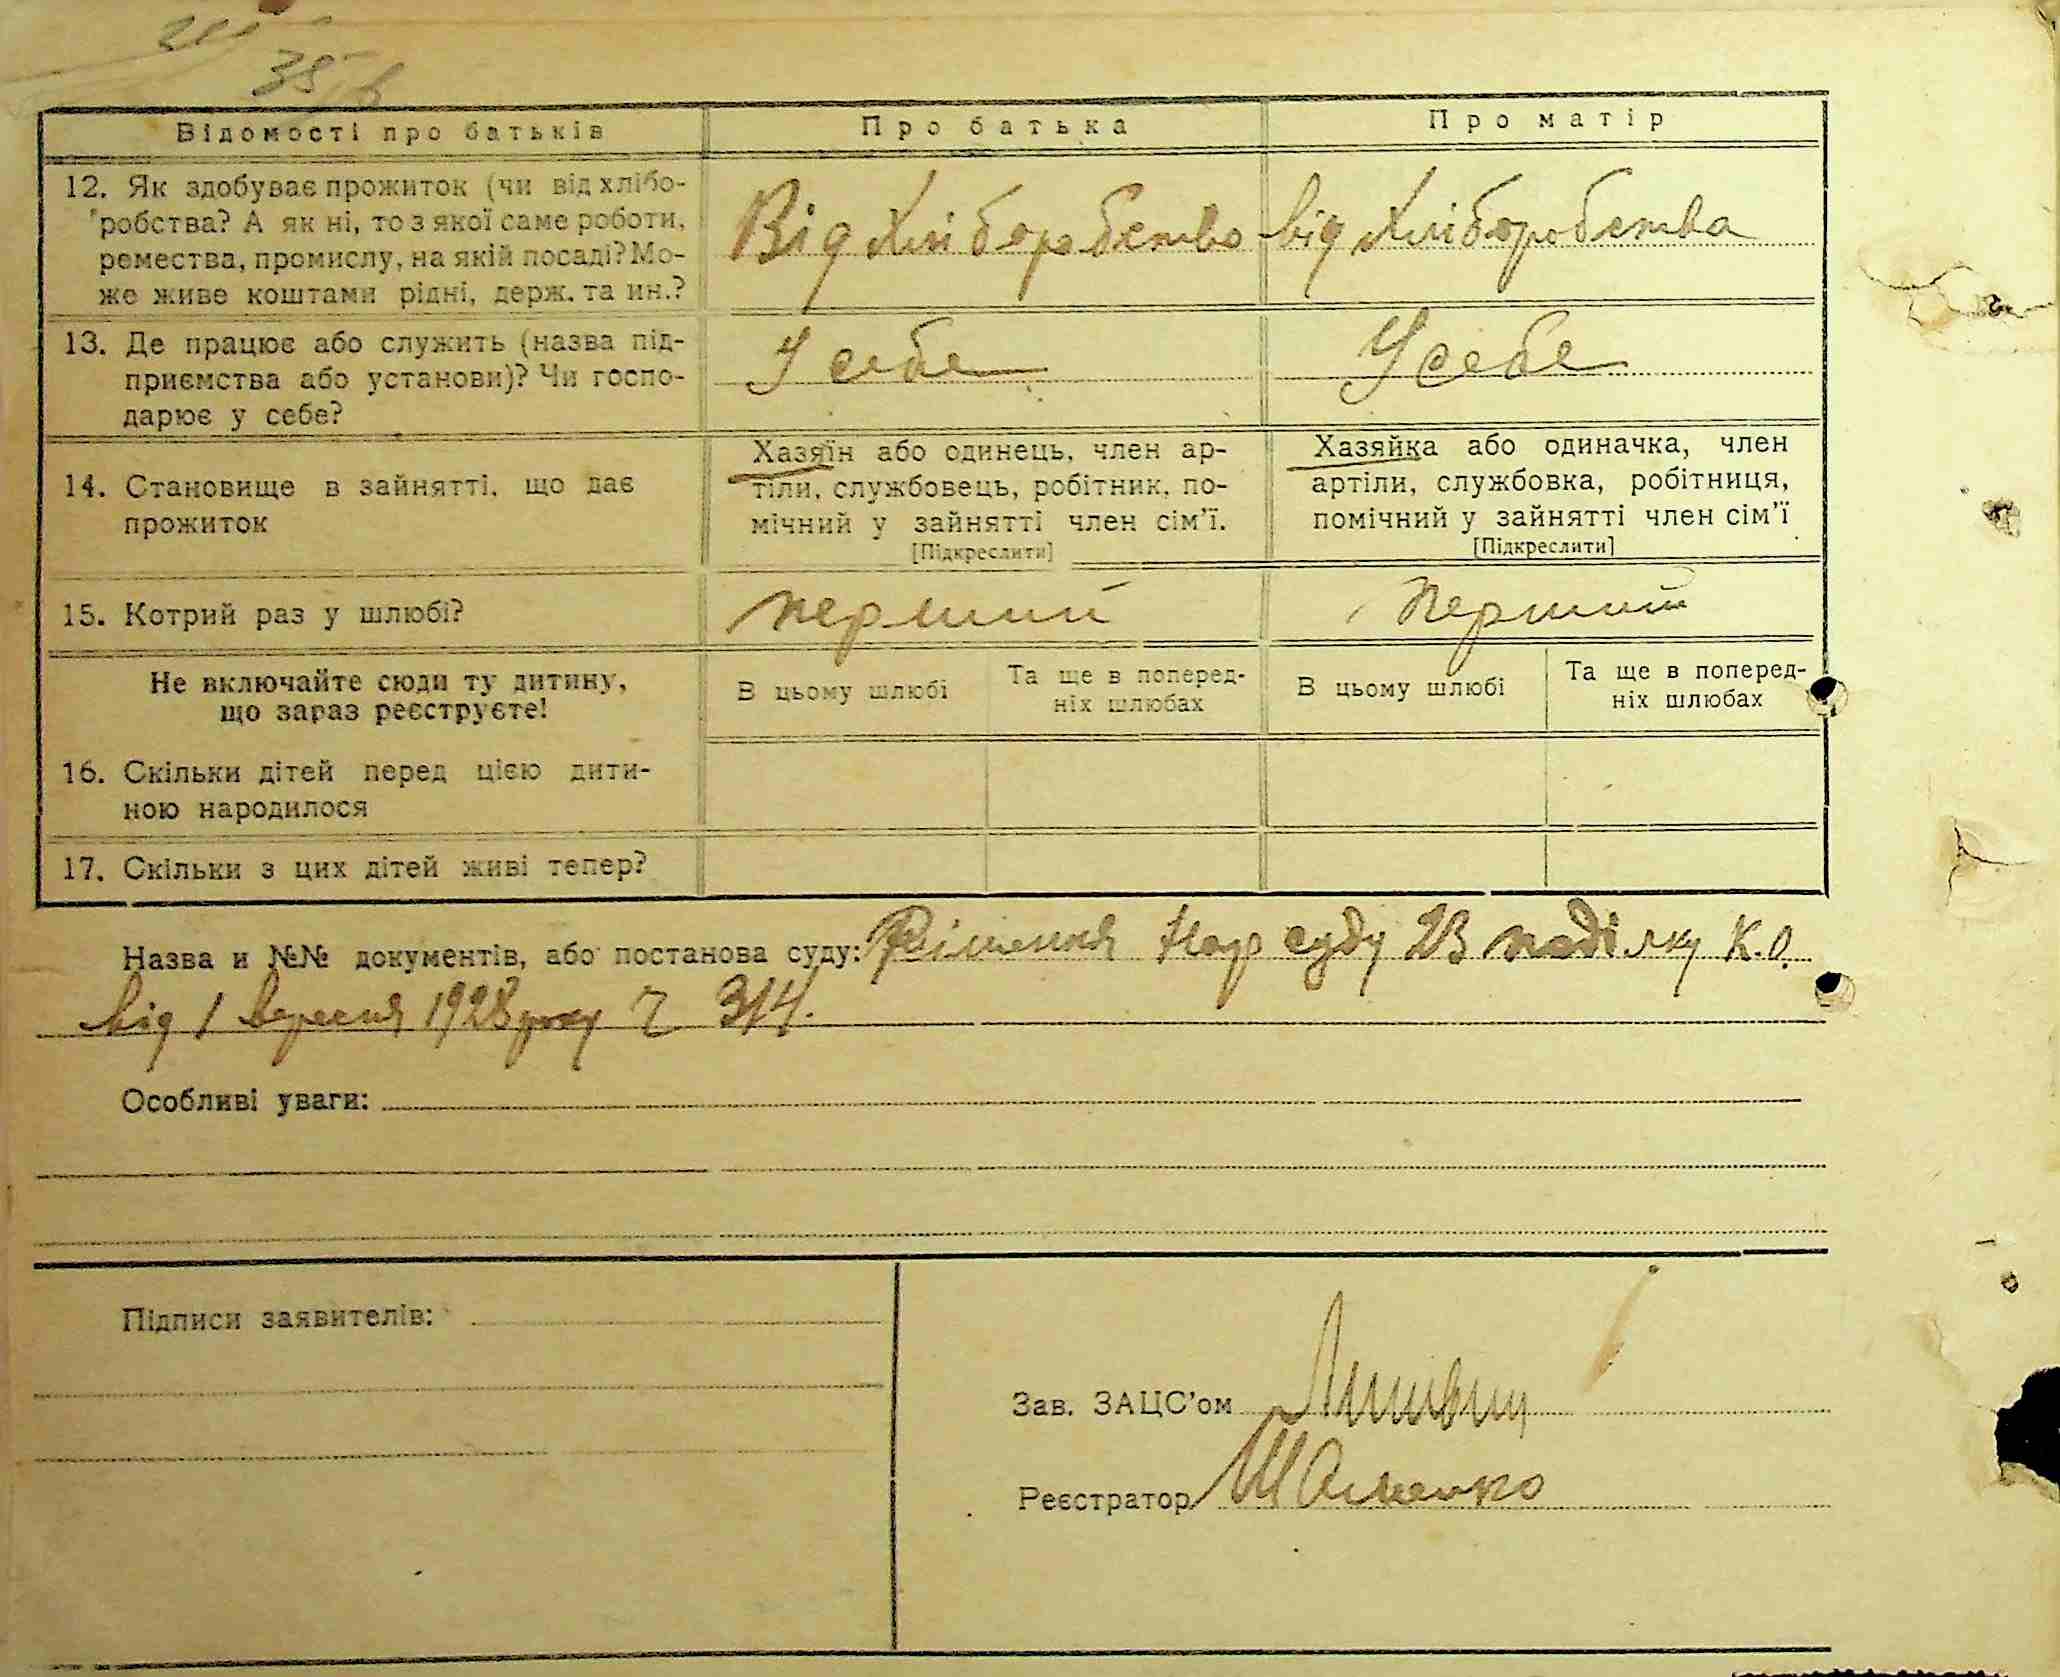 35
Відомості про батьків
Про батька
Про матір
12. Як здобуває прожиток (чи від хлібо-
робства? А як ні, то з якої саме роботи,
ремества, промислу, на якій посаді? Мо-
же живе коштами рідні, держ. та ин.?
Від Хліборобство
від Хліборобства
13. Де працює або служить (назва під-
приємства або установи)? Чи госпо-
дарює у себе?
У себе
У себе
14. Становище в зайнятті, що дає
прожиток
Хазяїн або одинець, член ар-
тіли, службовець, робітник, по-
мічний у зайнятті член сім'ї.
[Підкреслити]
Хазяйка або одиначка, член
артіли, службовка, робітниця,
помічний у зайнятті член сім'ї
[Підкреслити]
15. Котрий раз у шлюбі?
перший
Перший
Не включайте сюди ту дитину,
що зараз реєструєте!
В цьому шлюбі
Та ще в поперед-
ніх шлюбах
В цьому шлюбі
Та ще в поперед-
ніх шлюбах
16. Скільки дітей перед цією дити-
ною народилося
17. Скільки з цих дітей живі тепер?
Назва и №№ документів, або постанова суду: Рішення Нар суду 23 К.О.
від 1 вересня 1928 року Ч 314.
Особливі уваги:
Підписи заявителів:
Зав. ЗАЦС'ом
Реєстратор